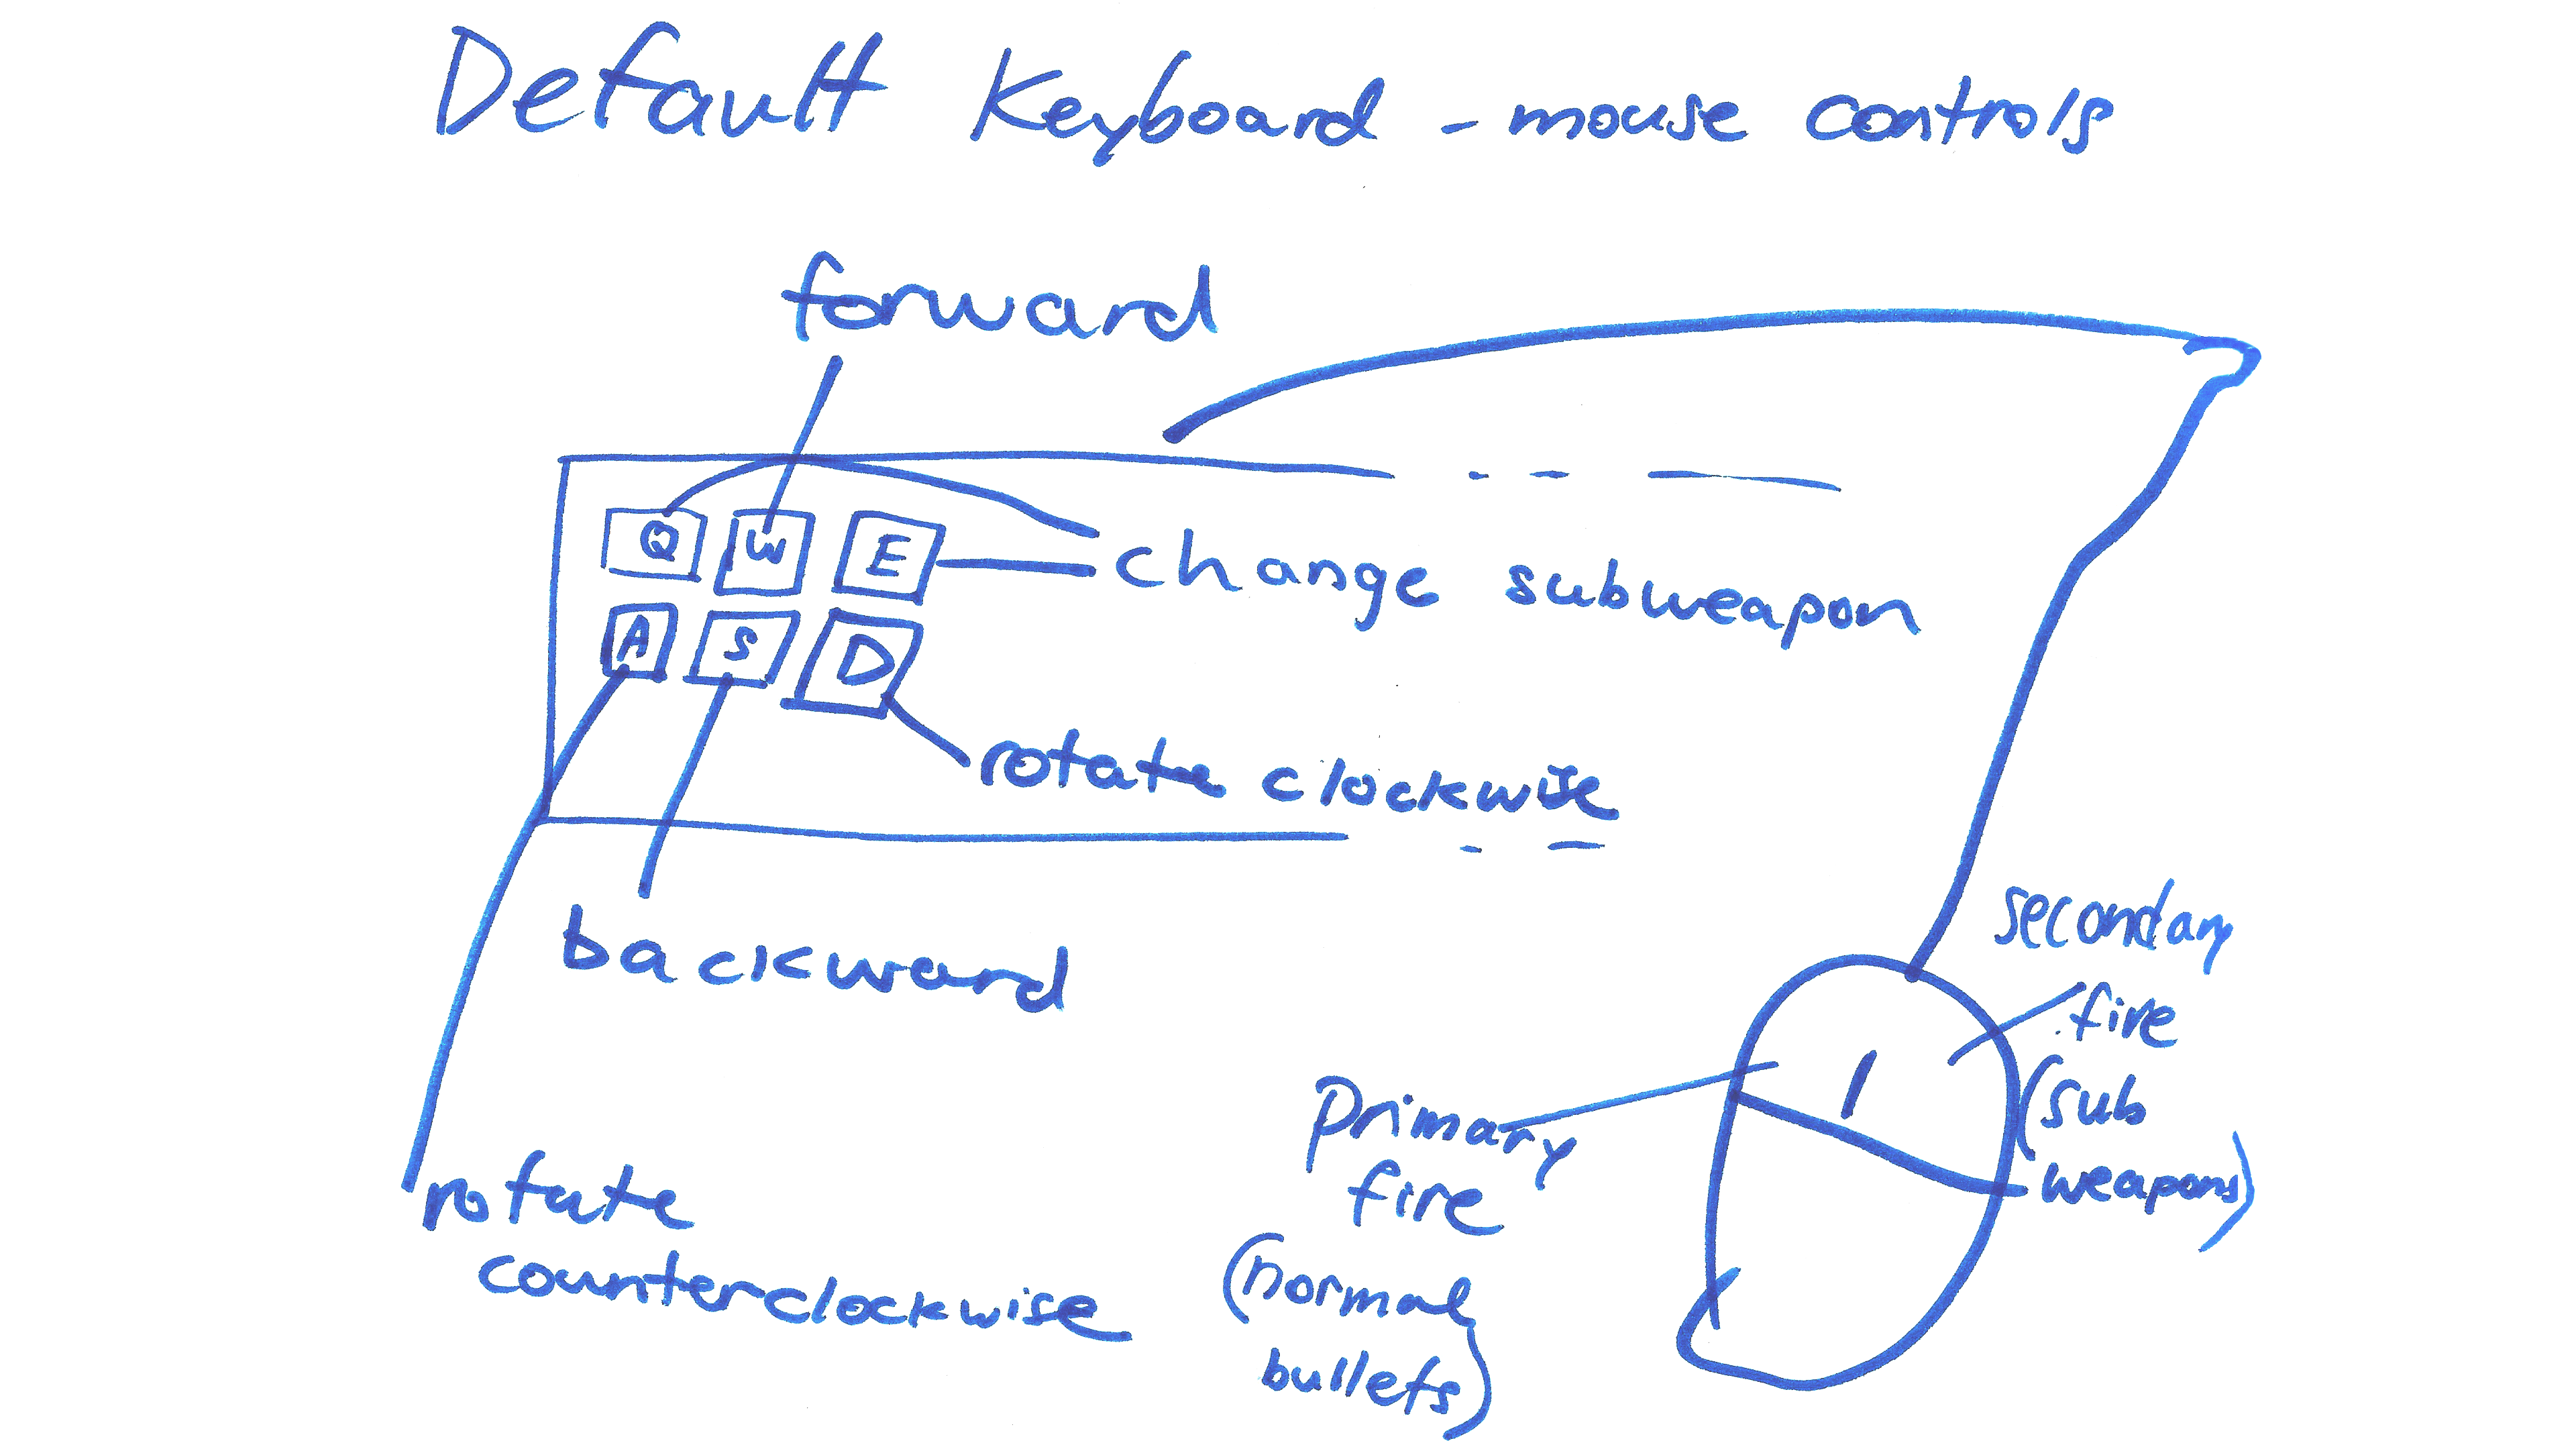 Default Keyboard - mouse controls
forward
Q W E
change subweapon
A S D
rotate clockwise
backward
rotate
counterclockwise
primary
fire
(normal
bullets)
secondary
fire
(sub
weapons)